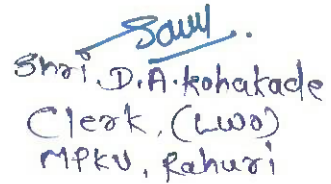 Shri. D.A. Kohakade
Clerk, (LWO)
MPKV, Rahuri